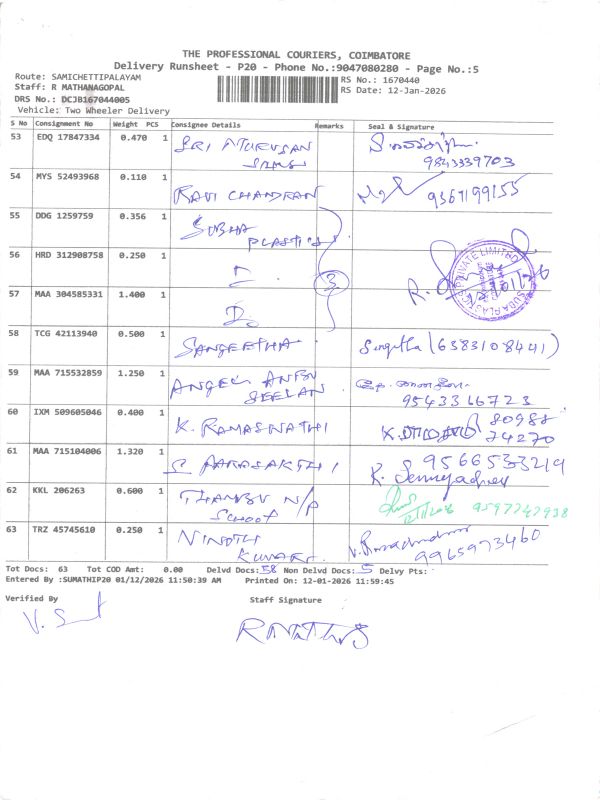 THE PROFESSIONAL COURIERS, COIMBATORE
Delivery Runsheet - P20 - Phone No.:9047080280 - Page No.:5
Route: SAMICHETTIPALAYAM
Staff: R MATHANAGOPAL
RS No.: 1670440
DRS No.: DCJB167044005
RS Date: 12-Jan-2026
Vehicle: Two Wheeler Delivery
S No Consignment No Weight PCS Consignee Details Remarks Seal & Signature
53 EDQ 17847334 0.470 1 SRI
9843339703
54 MYS 52493968 0.110 1 RAVI CHANDRAN 9367199155
55 DDG 1259759 0.356 1 SUBHA
PLASTICS
56 HRD 312908758 0.250 1 3
PRIVATE LIMITED
57 MAA 304585331 1.400 1
58 TCG 42113940 0.500 1 SANGEETHA Sangitha (6383108441)
59 MAA 715532859 1.250 1 ANGEL ANBU
SEELAN 9543366723
60 IXM 509605046 0.400 1 K. RAMASWATHI 80988
74270
61 MAA 715104006 1.320 1 9566533219
62 KKL 206263 0.600 1 THAMBU N/P
SCHOOL 9597247938
63 TRZ 45745610 0.250 1 VINOTH
KUMAR. 9965973460
Tot Docs: 63 Tot COD Amt: 0.00 Delvd Docs: 58 Non Delvd Docs: 5 Delvy Pts:
Entered By :SUMATHIP20 01/12/2026 11:50:39 AM Printed On: 12-01-2026 11:59:45
Verified By Staff Signature